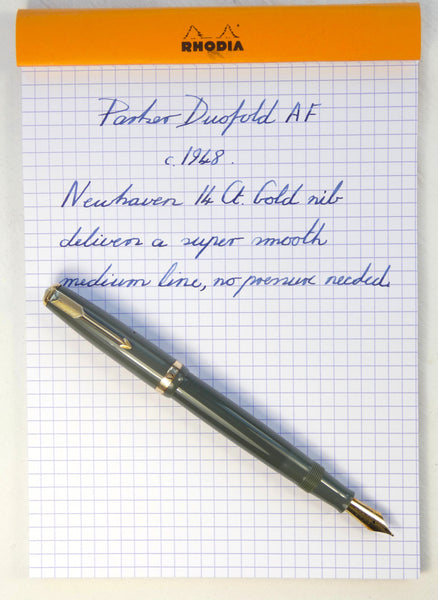 RHODIA
Parker Duofold AF
c.1948.
Newhaven 14 Ct. Gold nib
delivers a super smooth
medium line, no pressure needed.